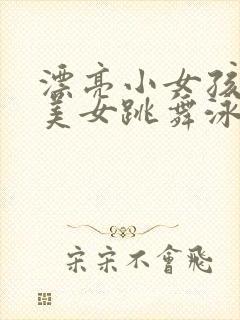 漂亮小女孩
美女跳舞泳
宋宋不會飛